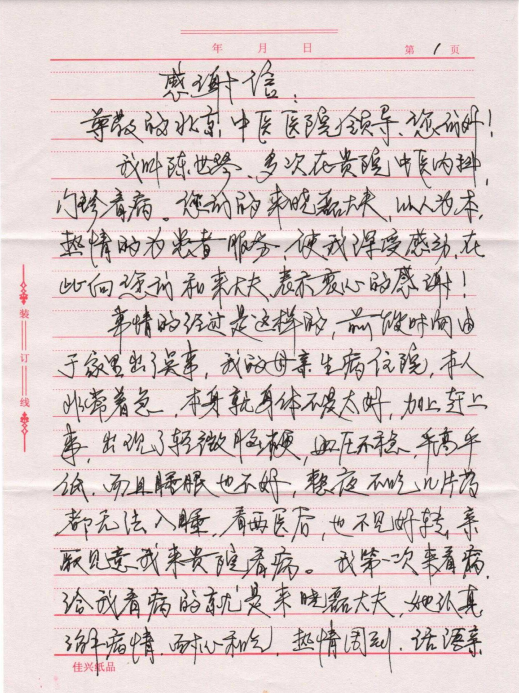 年 月 日 第 1 页
感谢信：
尊敬的北京中医医院领导、您们好！
我叫陈世琴、多次在贵院中医内科
门诊看病。您们的来晓磊大夫，以人为本，
热情的为患者服务，使我深受感动，在
此向您们和来大夫，表示衷心的感谢！
事情的经过是这样的，前段时间由
于家里出了点事，我的母亲生病住院，本人
非常着急，本身就身体不是太好，加上赶上
事，出现了轻微脑梗，血压不稳，乎高乎
低，而且睡眠也不好，整夜不吃几片药
都无法入睡，看西医后，也不见好转，亲
朋见意我来贵院看病。我第一次来看病，
给我看病的就是来晓磊大夫，她认真
讲病情，耐心和气，热情周到，话语亲
装订线
佳兴纸品